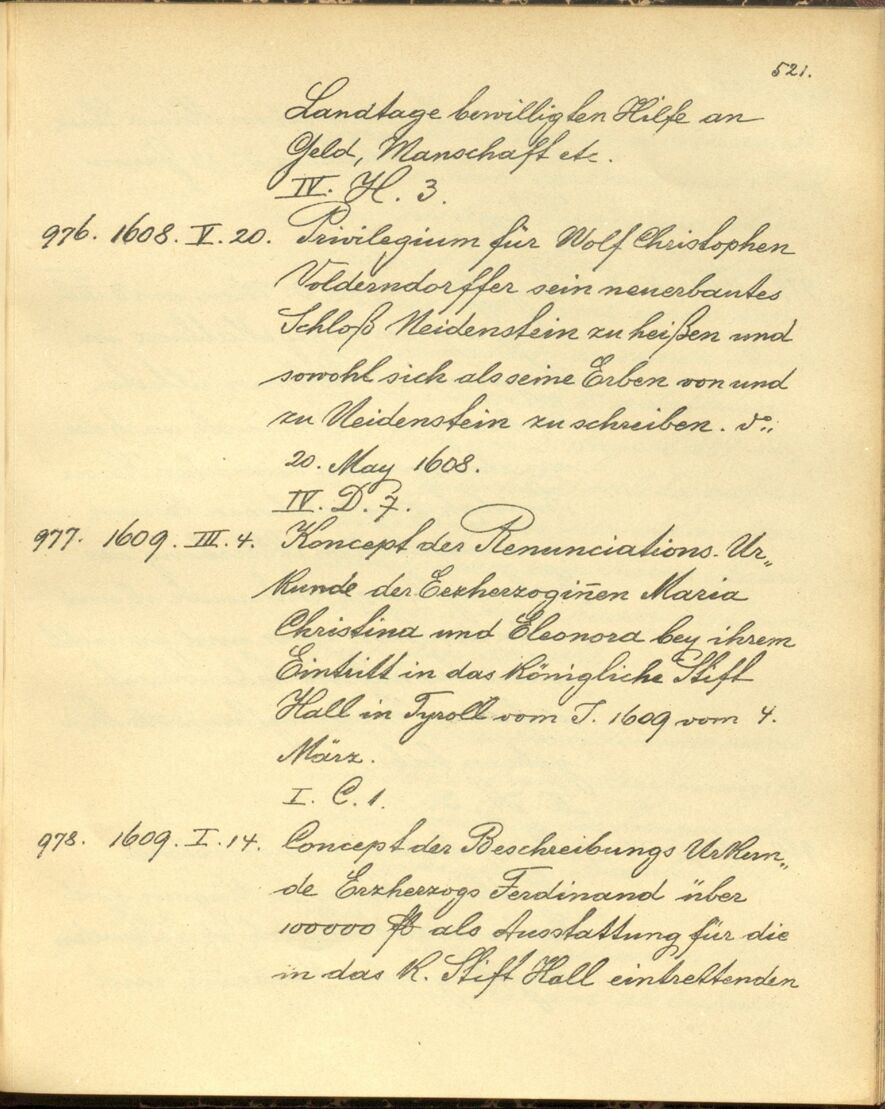 521.
Landtage bewilligten Hilfe an
Geld, Manschaft etc.
IV. H. 3.
976. 1608. V. 20. Privilegium für Wolf Christophen
Volderndorffer sein neuerbautes
Schloß Neidenstein zu heißen und
sowohl sich als seine Erben von und
zu Neidenstein zu schreiben. do:
20. May 1608.
IV. D. 7.
977. 1609. III. 4. Koncept der Renunciations-Ur„
kunde der Erzherzogin̄en Maria
Christina und Eleonora bey ihrem
Eintritt in das königliche Stift
Hall in Tyroll vom J. 1609 vom 4.
März.
I. C. 1.
978. 1609. I. 14. Concept der Beschreibungs Urkun„
de Erzherzogs Ferdinand über
100000 fl als Ausstattung für die
in das K. Stift Hall eintrettenden